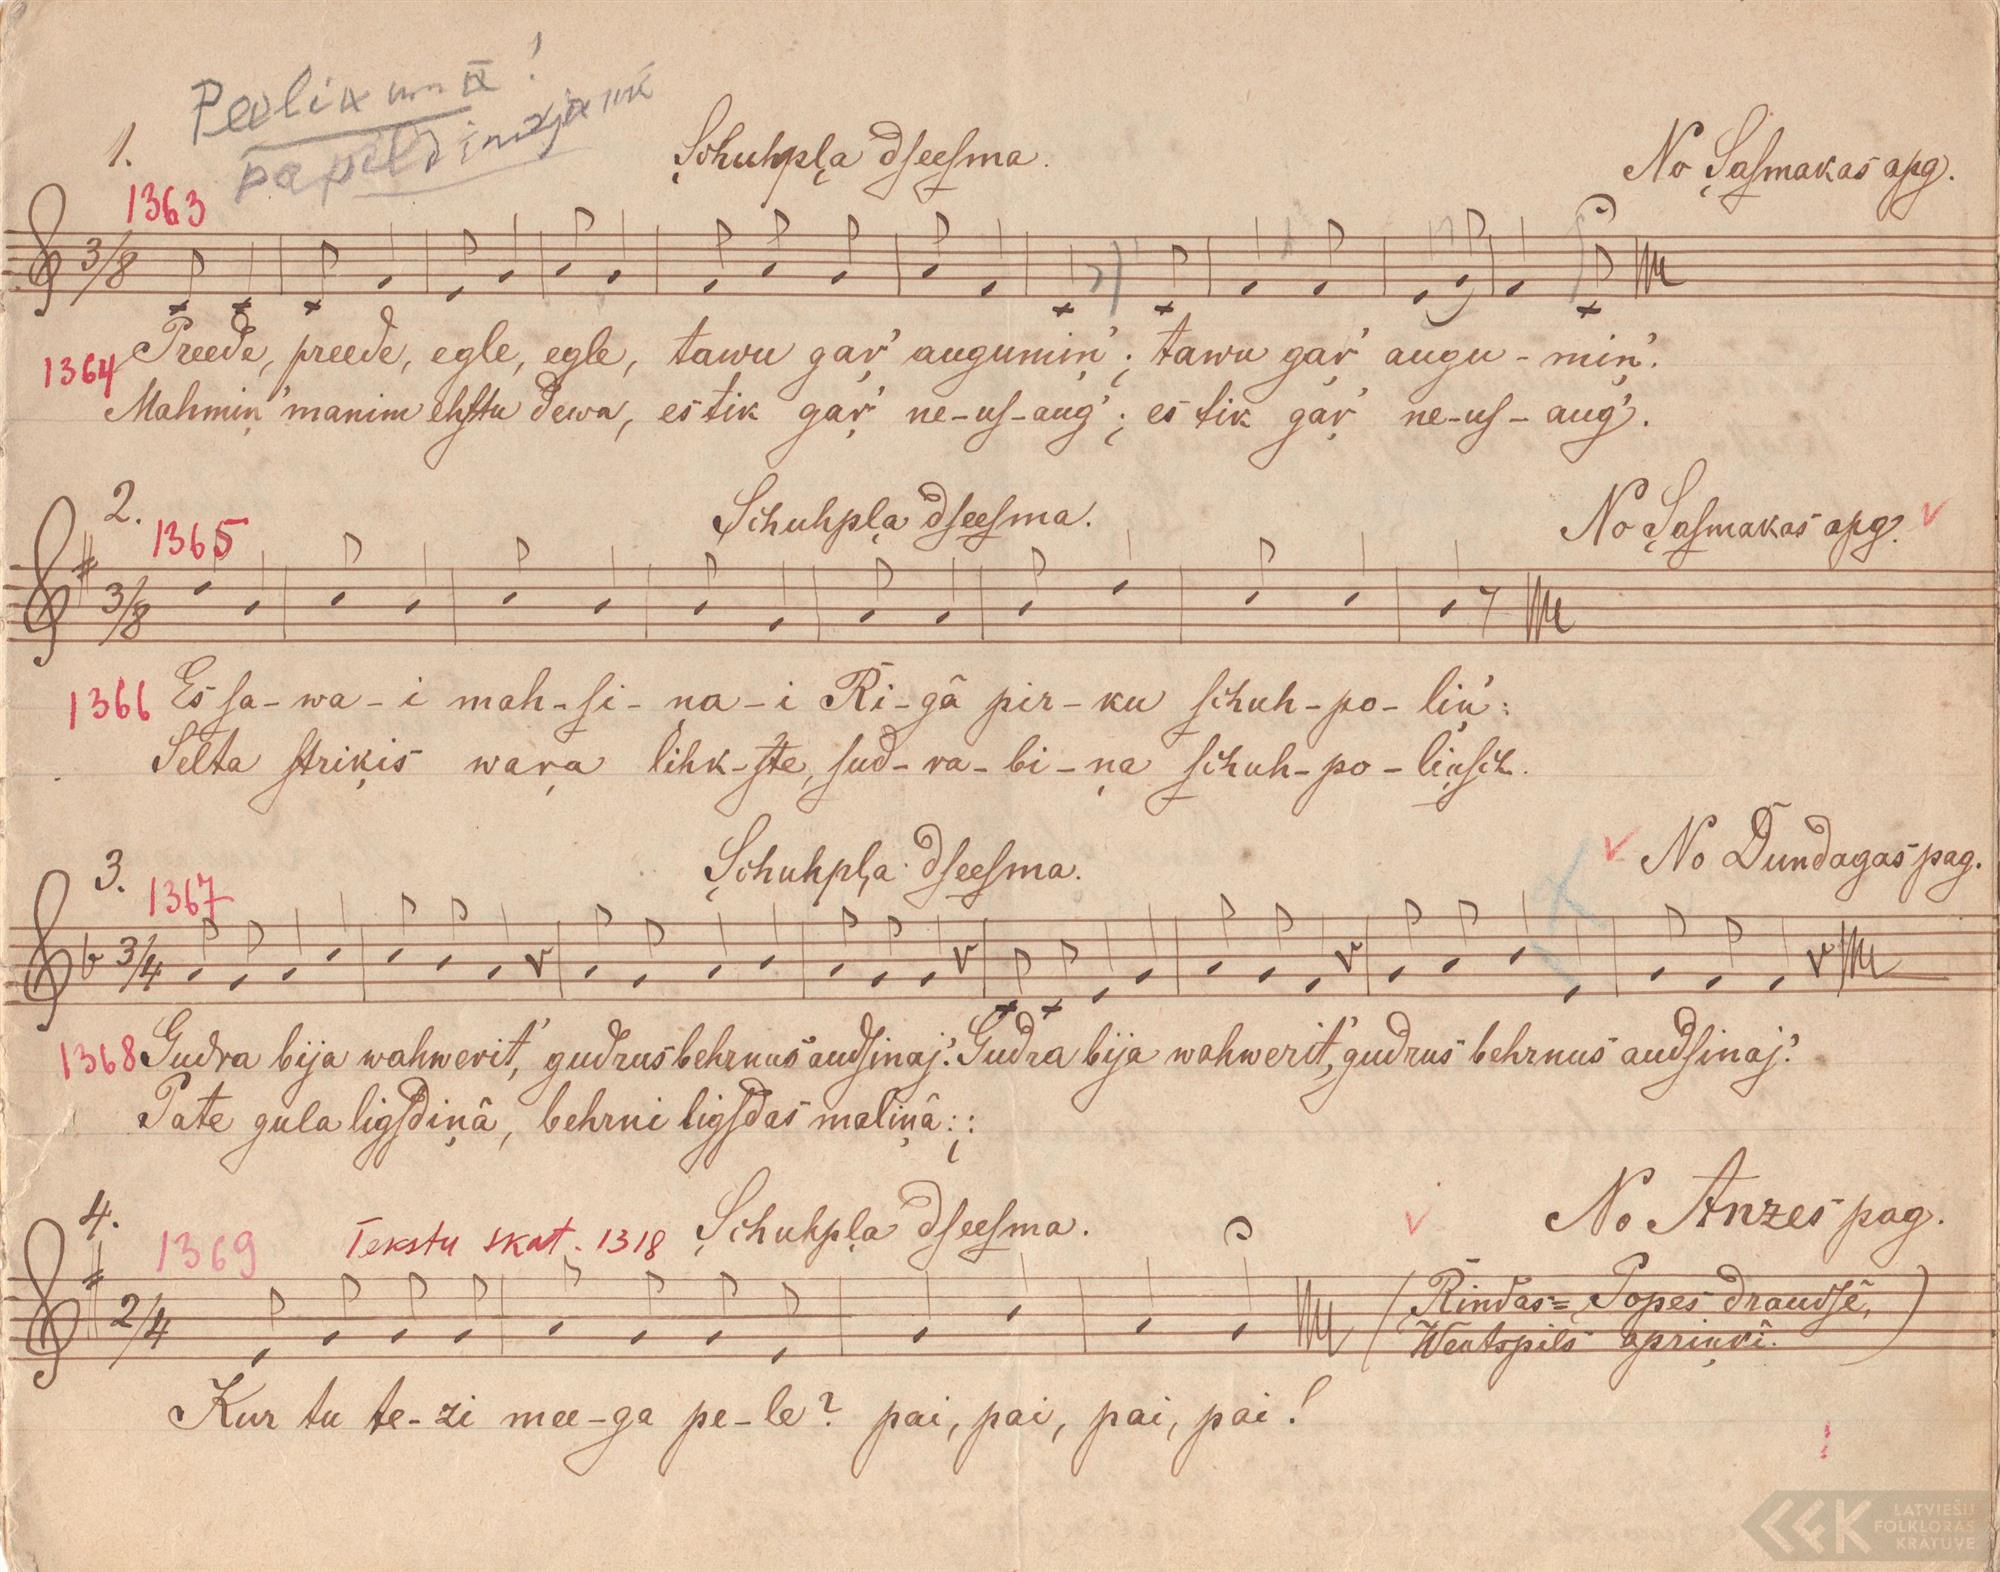 Peelikumā!
papildinajumi
1. Şchuhpļa dſeeſma. No Şaſmakas apg.
1363
3/8
Preede, preede, egle, egle, tawu gaŗ' augumiņ'; tawu gaŗ' augu-miņ'.
1364
Mahmiņ' manim ehſtu dewa, es tik gaŗ' ne-uſ-aug'; es tik gaŗ' ne-uſ-aug'.
2. Şchuhpļa dſeeſma. No Şaſmakas apg.
1365
3/8
Es ſa-wa-i mah-ſi-na-i Rī-gâ pir-ku ſchuh-po-liņ':
1366
Selta ſtriķis waŗa lihk-ſte, ſud-ra-bi-ņa ſchuh-po-liņſch.
3. Şchuhpļa dſeeſma. No Dundagas pag.
1367
3/4
1368 Gudra bija wahwerit', gudrus behrnus audſinaj'. Gudra bija wahwerit', gudrus behrnus audſinaj'.
Pate gula ligſdiņâ, behrni ligſdas maliņâ:;:
4. Şchuhpļa dſeeſma. No Anzes pag.
1369 Tekstu skat. 1318
2/4
(Rindas= Popes draudſê,
Wentspils apriņķî.)
Kur tu te-zi mee-ga pe-le? pai, pai, pai, pai!
LATVIEŠU
FOLKLORAS
KRĀTUVE